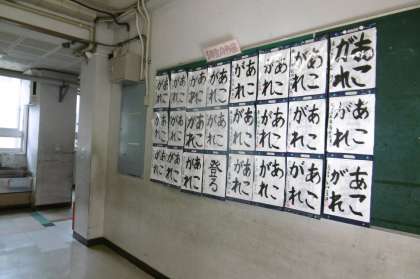 あこ
がれ
あこ
がれ
あこ
がれ
あこ
がれ
あこ
がれ
あこ
がれ
あこ
がれ
あこ
がれ
あこ
がれ
あこ
がれ
あこ
がれ
あこ
がれ
あこ
がれ
あこ
がれ
あこ
がれ
あこ
がれ
あこ
がれ
あこ
がれ
あこ
がれ
あこ
がれ
登る
あこ
がれ
あこ
がれ
あこ
がれ